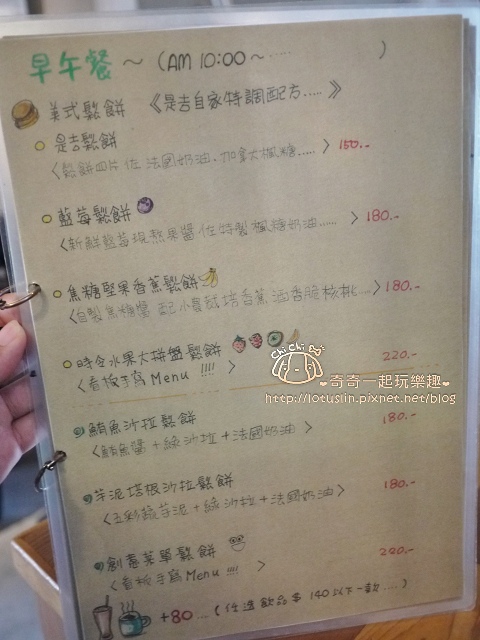 早午餐 ~ (AM 10:00 ~ ..... )
美式鬆餅 《是吉自家特調配方.....》
是吉鬆餅
〈鬆餅四片佐法國奶油.加拿大楓糖.....〉 150.-
藍莓鬆餅
〈新鮮藍莓現熬果醬佐特製楓糖奶油......〉 180.-
焦糖堅果香蕉鬆餅
〈自製焦糖醬 配小農栽培香蕉 酒香脆核桃....〉 180.-
時令水果大拼盤鬆餅 220.-
〈看板手寫 Menu !!!! 〉
ChiChi
奇奇一起玩樂趣
http://lotuslin.pixnet.net/blog
鮪魚沙拉鬆餅 180.-
〈鮪魚醬+綠沙拉+法國奶油〉
芋泥培根沙拉鬆餅 180.-
〈五彩蔬芋泥+綠沙拉+法國奶油〉
創意菜單鬆餅 220.-
〈看板手寫 Menu !!!! 〉
+80 ... (任選飲品單 140以下一款.....)